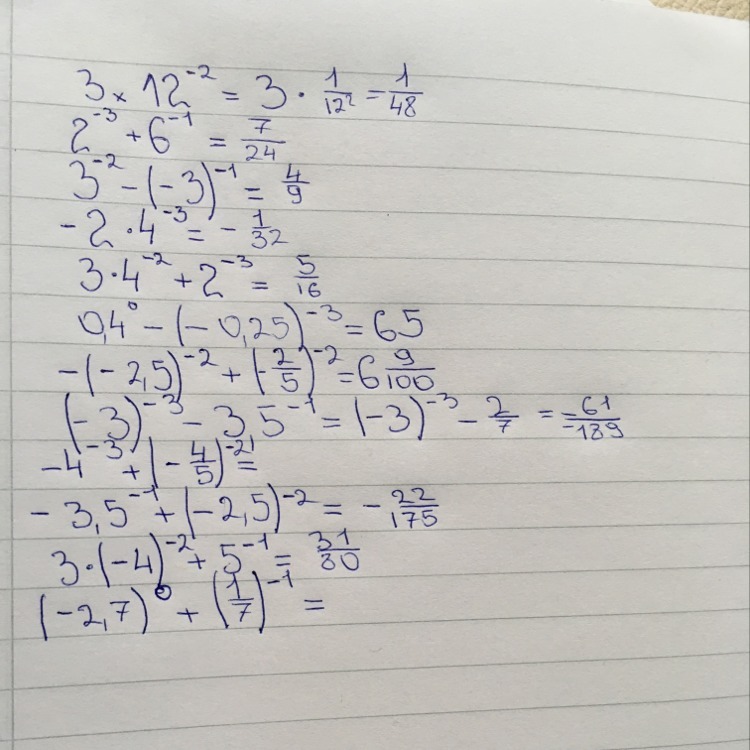 3 × 12⁻² = 3 · 1/12² = 1/48
2⁻³ + 6⁻¹ = 7/24
3⁻² - (-3)⁻¹ = 4/9
-2 · 4⁻³ = - 1/32
3 · 4⁻² + 2⁻³ = 5/16
0,4⁰ - (-0,25)⁻³ = 65
-(-2,5)⁻² + (-2/5)⁻² = 6 9/100
(-3)⁻³ - 3,5⁻¹ = (-3)⁻³ - 2/7 = -61/-189
-4⁻³ + (-4/5)⁻² =
-3,5⁻¹ + (-2,5)⁻² = - 22/175
3 · (-4)⁻² + 5⁻¹ = 31/80
(-2,7)⁰ + (1/7)⁻¹ =